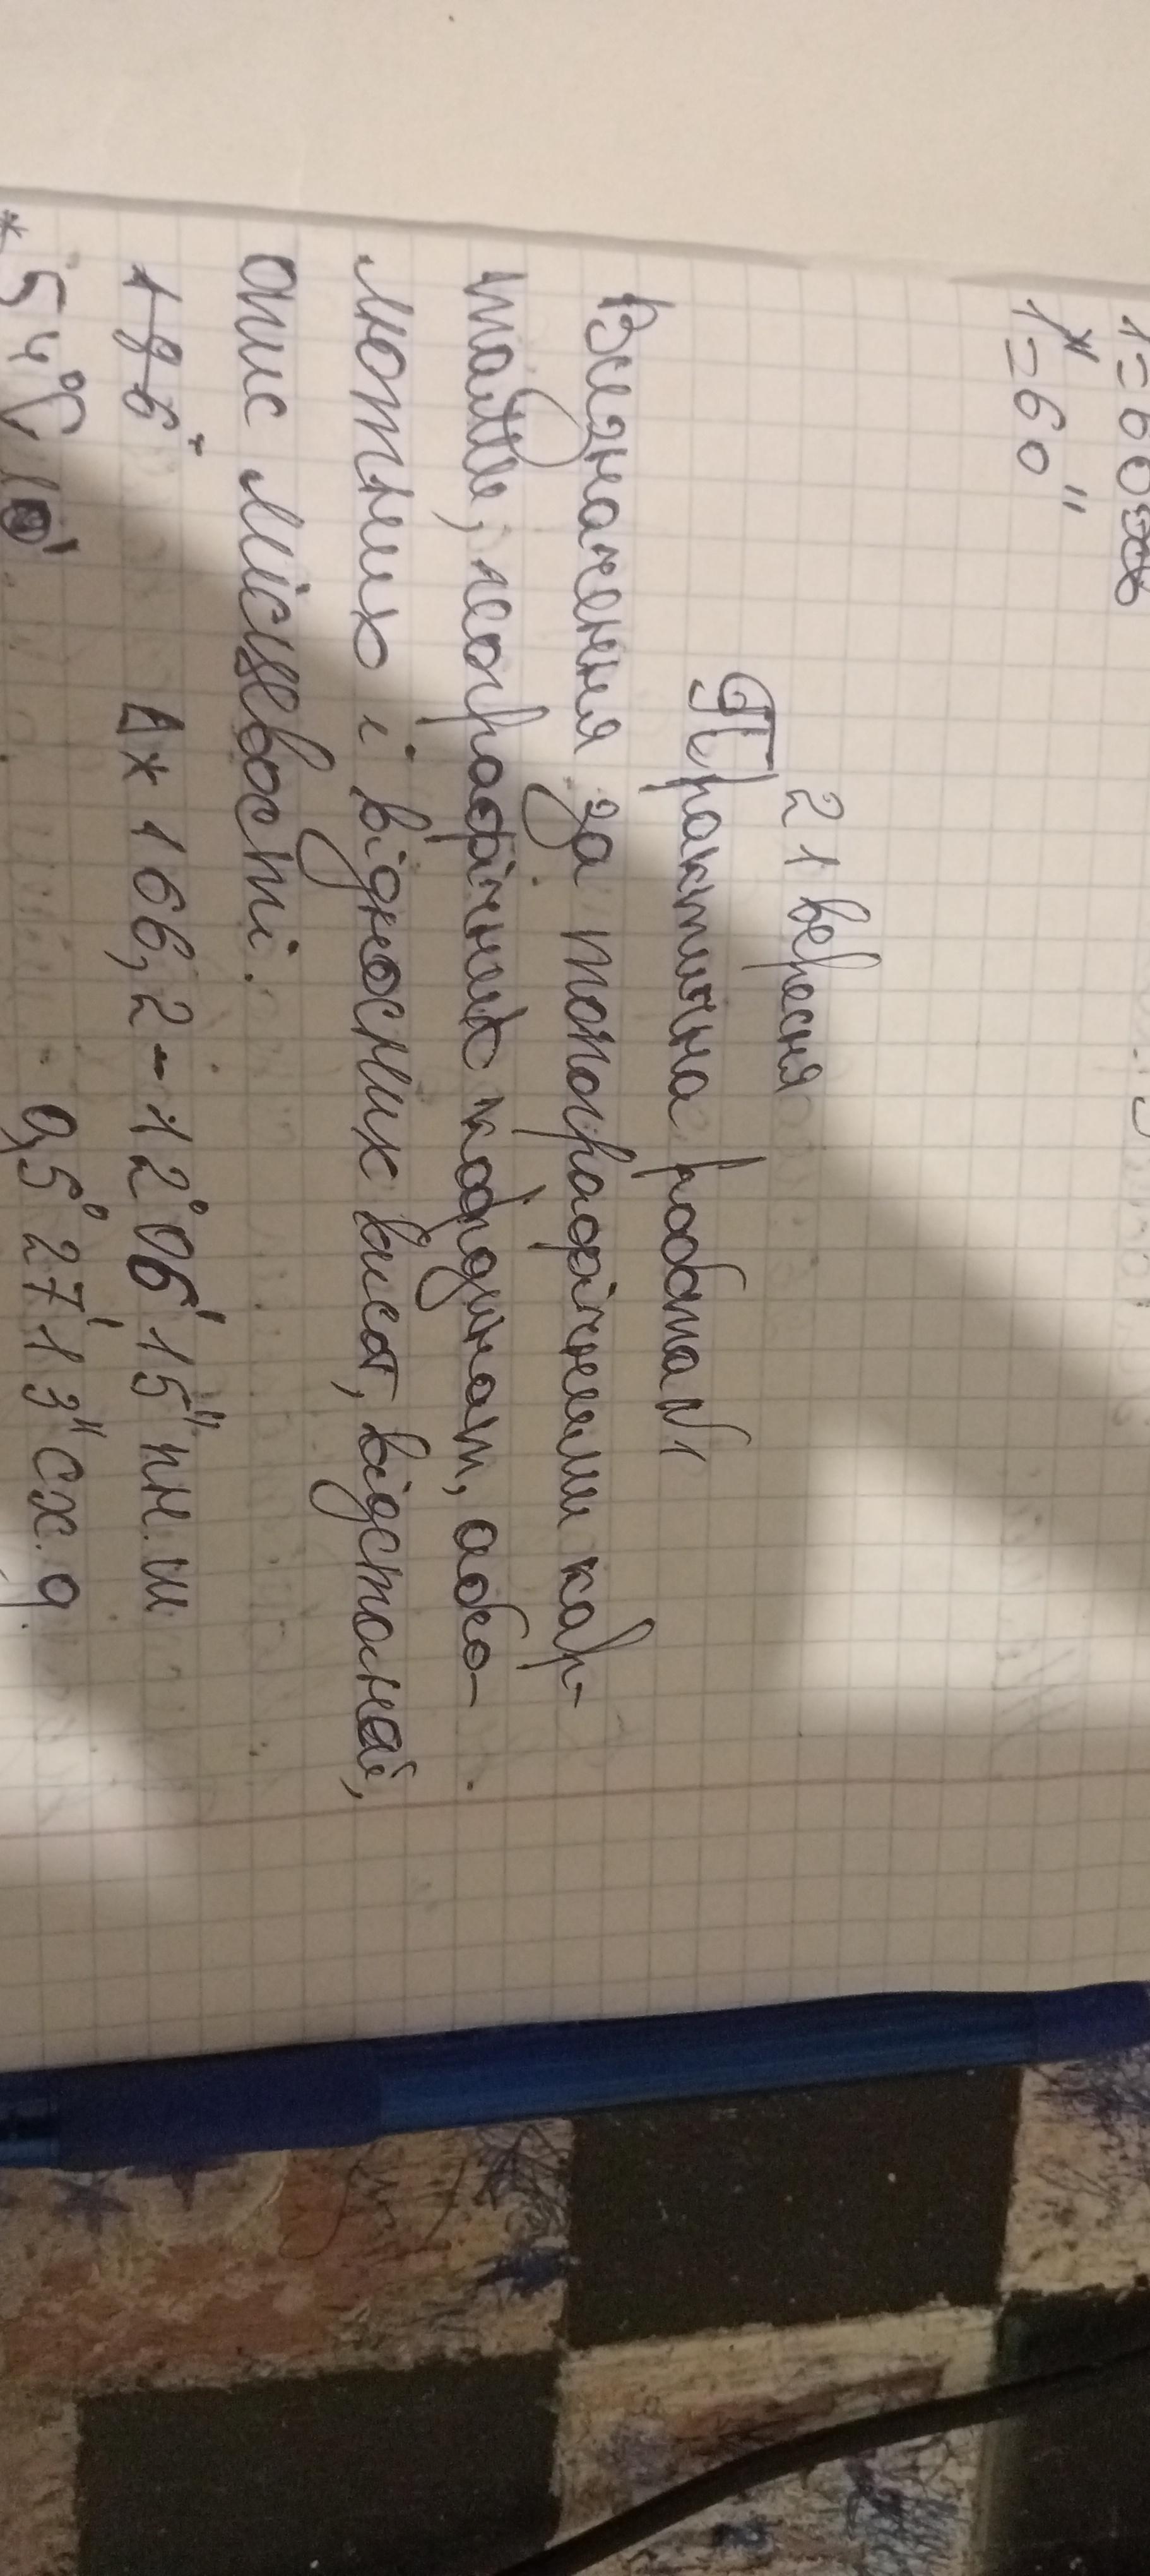 1=60
1=60"
21 вересня
Практична робота №1
Визначення за топографічними кар-
тами, географічних координат, абсо-
лютних і відносних висот, відстаней,
опис місцевості.
166,2-12°06'15" пн.ш
*54° 10' 0,5°27'13" сх.д